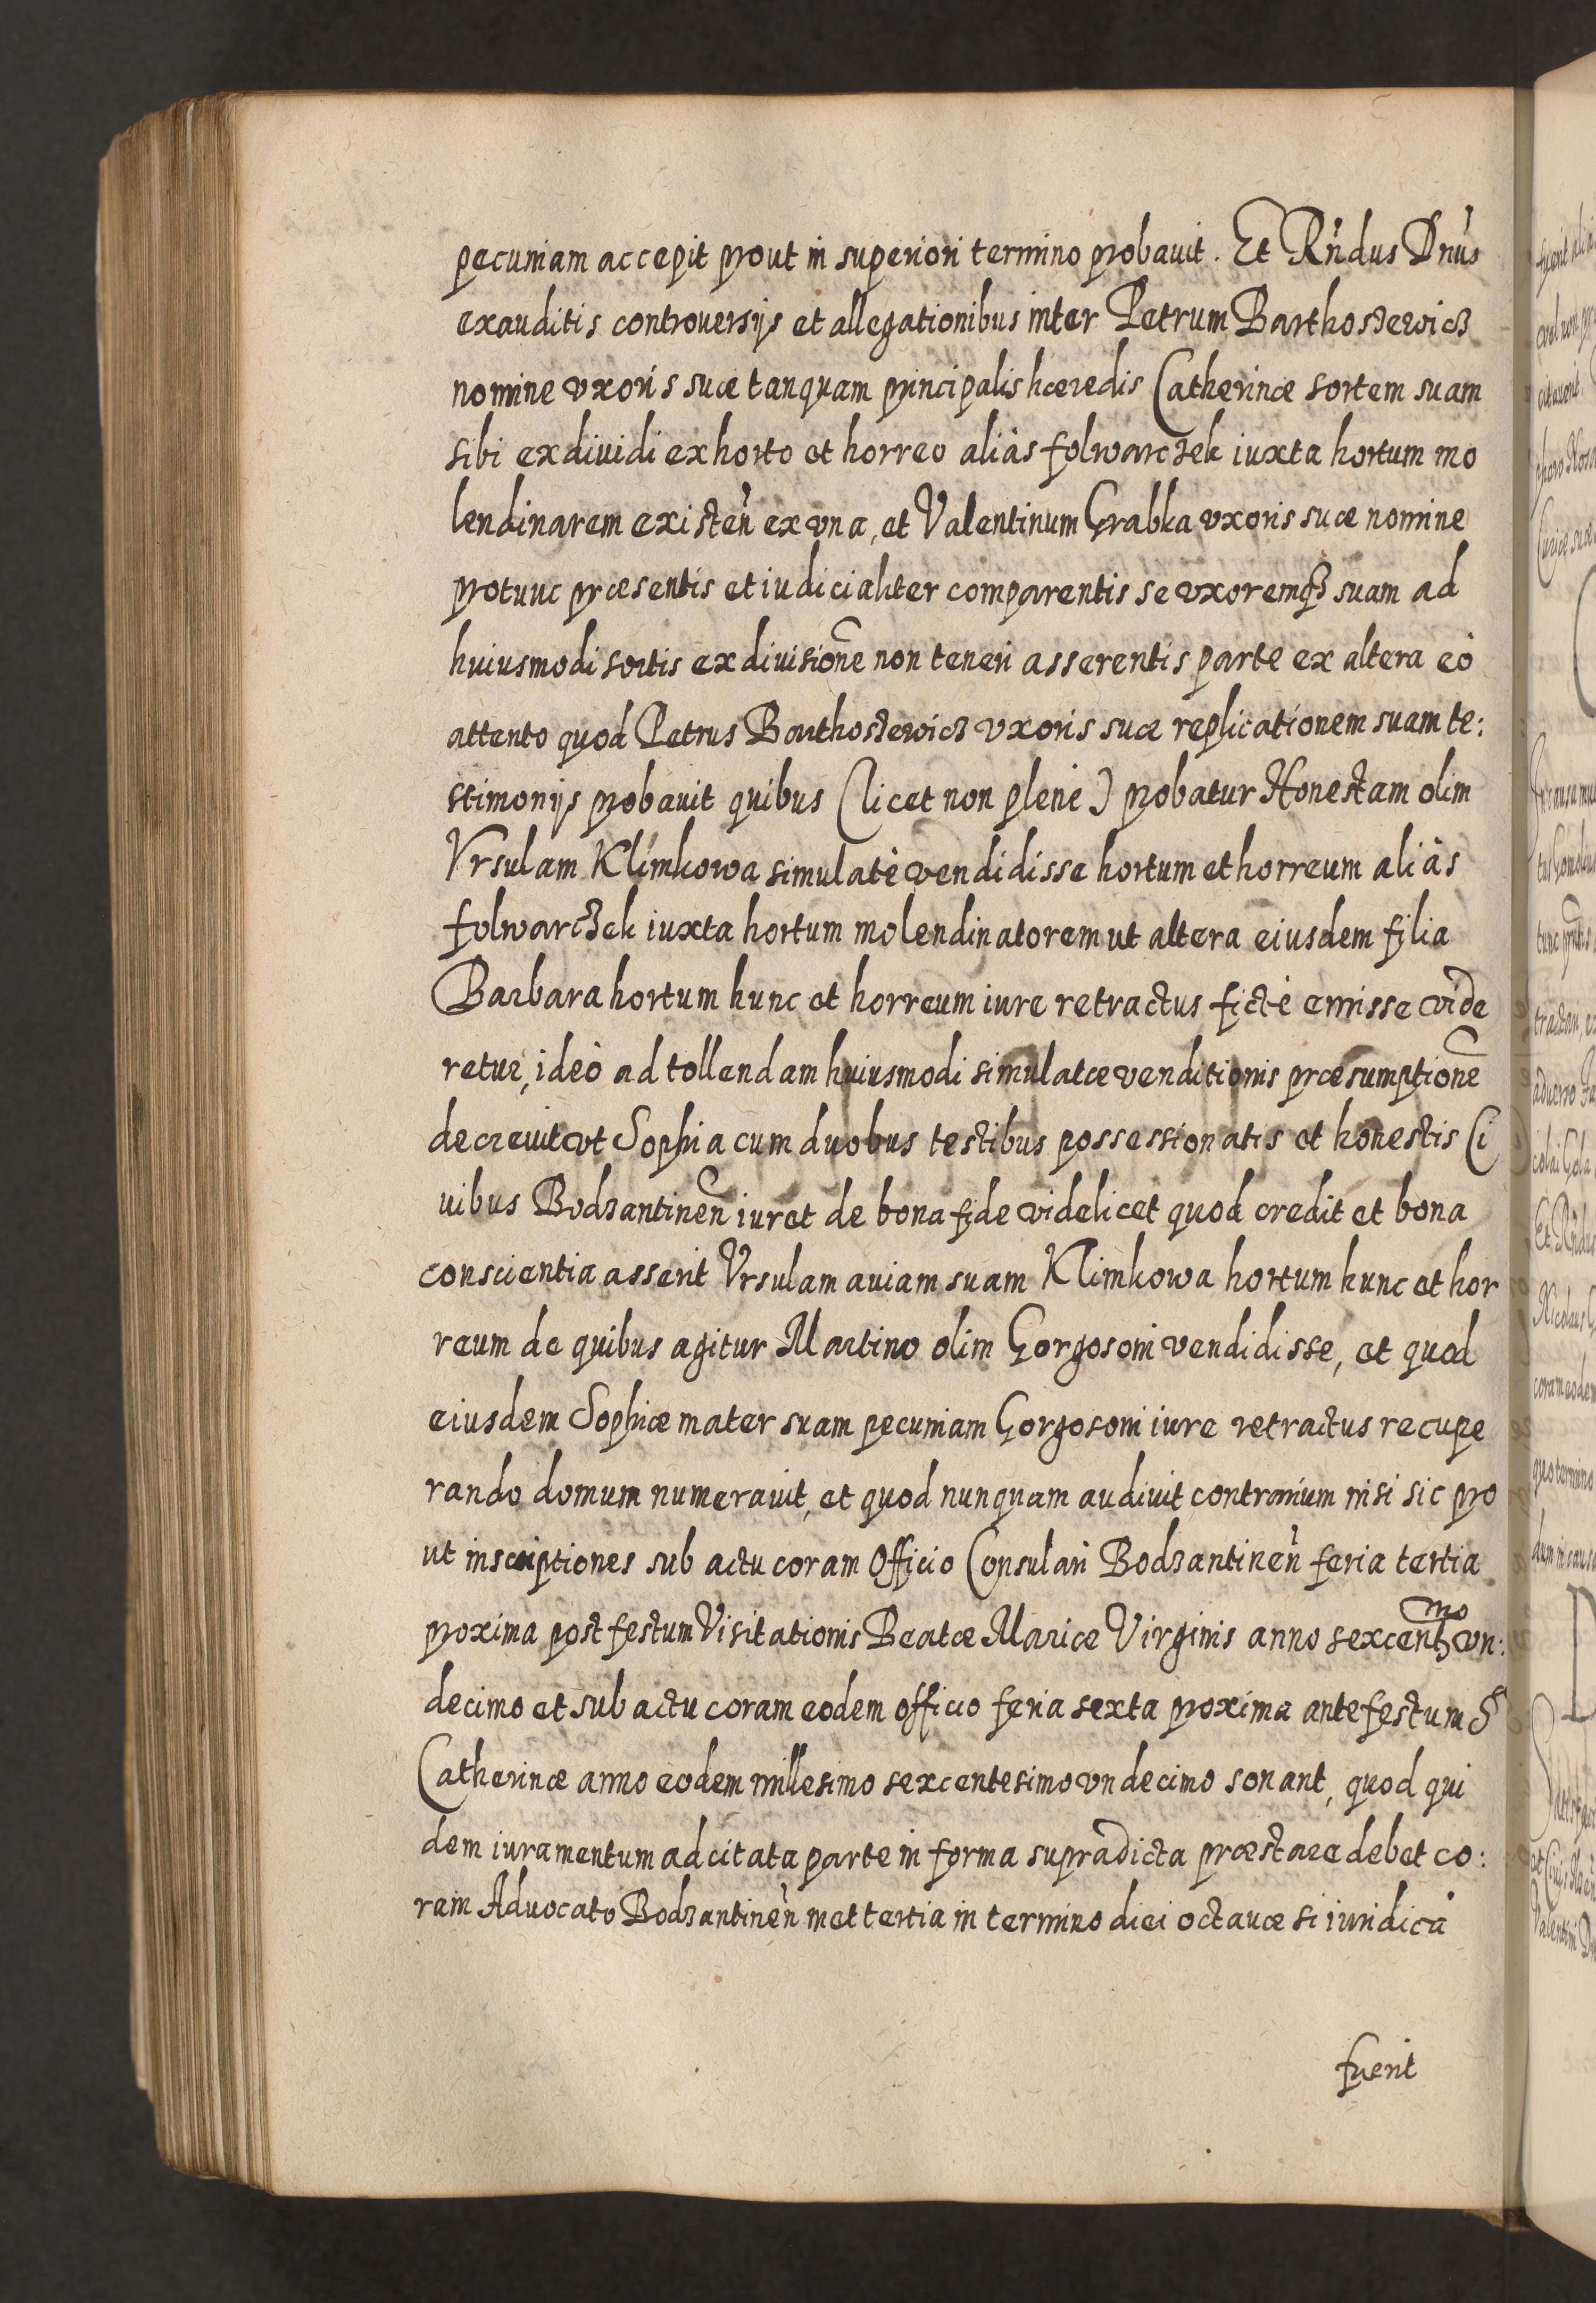 pecuniam accepit prout in superiori termino probauit. Et Rńdus Dńus
exauditis controuersijs et allegationibus inter Petrum Barthoszewicz
nomine vxoris suæ tanquam principalis hæredis Catherinæ sortem suam
sibi exdiuidi ex horto et horreo aliàs folwarczek iuxta hortum mo
lendinarem existeń ex vna, et Valentinum Grabka vxoris suæ nomine
protunc præsentis et iudicialiter comparentis se vxoremqȝ suam ad
huiusmodi sortis exdiuisione non teneri asserentis parte ex altera eò
attento quod Petrus Barthoszewicz vxoris suæ replicationem suam te:
stimonijs probauit quibus (licet non plenè) probatur Honestam olim
Vrsulam Klimkowa simulatè vendidisse hortum et horreum aliàs
folwarczek iuxta hortum molendinatorem ut altera eiusdem filia
Barbara hortum hunc et horreum iure retractus fictè emisse vide
retur, ideò ad tollendam huiusmodi simulatæ venditionis præsumptionē
decreuit vt Sophia cum duobus testibus possessionatis et honestis Ci
uibus Bodzantineñ iuret de bona fide videlicet quod credit et bona
conscientia asserit Vrsulam auiam suam Klimkowa hortum hunc et hor
reum de quibus agitur Martino olim Gorgosoni vendidisse, et quod
eiusdem Sophiæ mater suam pecuniam Gorgosoni iure retractus recupe
rando domum numerauit, et quod nunquam audiuit contrarium nisi sic pro
ut inscriptiones sub actu coram Officio Consulari Bodzantineń feria tertia
proxima post festum Visitationis Beatæ Mariæ Virginis anno sexcentᵐᵒ vn:
decimo et sub actu coram eodem officio feria sexta proxima ante festum S
Catherinæ anno eodem millesimo sexcentesimo vndecimo sonant, quod qui
dem iuramentum ad citata parte in forma supradicta præstare debet co:
ram Aduocato Bodzantineń met tertia in termino diei octauæ si iuridica
fuerit